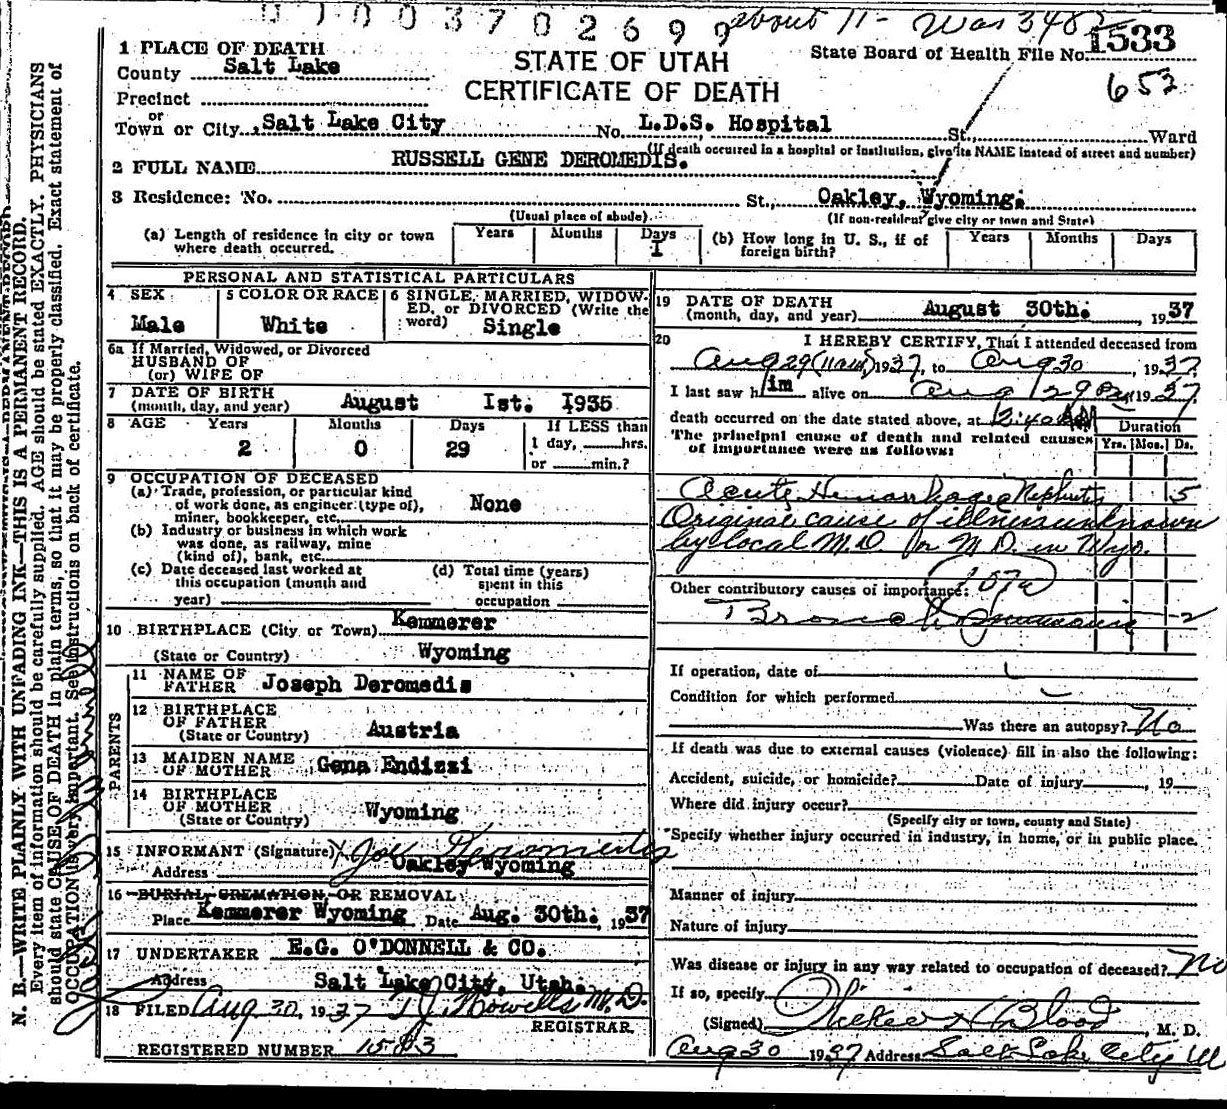 0 1 0 0 3 7 0 2 6 9 9 about 11- Was 348
1 PLACE OF DEATH
County Salt Lake
Precinct
or
Town or City Salt Lake City No. L.D.S. Hospital St., Ward
(If death occurred in a hospital or institution, give its NAME instead of street and number)
STATE OF UTAH
CERTIFICATE OF DEATH
State Board of Health File No. 1533
653
2 FULL NAME RUSSELL GENE DEROMEDIS.
3 Residence: No. St., Oakley, Wyoming.
(Usual place of abode) (If non-resident give city or town and State)
(a) Length of residence in city or town where death occurred. Years Months Days I
(b) How long in U. S., if of foreign birth? Years Months Days
PERSONAL AND STATISTICAL PARTICULARS
4 SEX Male
5 COLOR OR RACE White
6 SINGLE, MARRIED, WIDOWED, or DIVORCED (Write the word) Single
6a If Married, Widowed, or Divorced
HUSBAND OF
(or) WIFE OF
7 DATE OF BIRTH
(month, day, and year) August Ist. I935
8 AGE Years Months Days If LESS than
2 0 29 1 day, hrs.
or min.?
9 OCCUPATION OF DECEASED
(a) Trade, profession, or particular kind
of work done, as engineer (type of),
miner, bookkeeper, etc. None
(b) Industry or business in which work
was done, as railway, mine
(kind of), bank, etc.
(c) Date deceased last worked at
this occupation (month and
year)
(d) Total time (years)
spent in this
occupation
10 BIRTHPLACE (City or Town) Kemmerer
(State or Country) Wyoming
PARENTS
11 NAME OF
FATHER Joseph Deromedis
12 BIRTHPLACE
OF FATHER
(State or Country) Austria
13 MAIDEN NAME
OF MOTHER Gena Endizzi
14 BIRTHPLACE
OF MOTHER
(State or Country) Wyoming
15 INFORMANT (Signature) X Joe Deromedis
Address Oakley Wyoming
16 BURIAL CREMATION, OR REMOVAL:
Place Kemmerer Wyoming Date Aug. 30th. , 1937
17 UNDERTAKER E.G. O'DONNELL & CO.
Address Salt Lake City, Utah.
18 FILED Aug 30, 1937 T J Howells M.D.
REGISTRAR
REGISTERED NUMBER 1583
19 DATE OF DEATH
(month, day, and year) August 30th. , 1937
20 I HEREBY CERTIFY, That I attended deceased from
Aug 29 (11am) 1937, to Aug 30 , 1937.
I last saw him alive on Aug 29 1937.
death occurred on the date stated above, at 12:40 AM
The principal cause of death and related causes
of importance were as follows:
Duration
Yrs. Mos. Ds.
Acute Hemorrhagic Nephritis 5
Original cause of illness unknown
by local M.D. or M.D. in Wyo.
Other contributory causes of importance:
Bronchopneumonia 2
If operation, date of
Condition for which performed
Was there an autopsy? No
If death was due to external causes (violence) fill in also the following:
Accident, suicide, or homicide? Date of injury , 19
Where did injury occur?
(Specify city or town, county and State)
Specify whether injury occurred in industry, in home, or in public place.
Manner of injury
Nature of injury
Was disease or injury in any way related to occupation of deceased? No
If so, specify
(Signed) Blood , M. D.
Aug 30 1937 Address Salt Lake City Ut
N. B.—WRITE PLAINLY WITH UNFADING INK—THIS IS A PERMANENT RECORD.
Every item of information should be carefully supplied. AGE should be stated EXACTLY. PHYSICIANS
should state CAUSE OF DEATH in plain terms, so that it may be properly classified. Exact statement of
OCCUPATION is very important. See instructions on back of certificate.